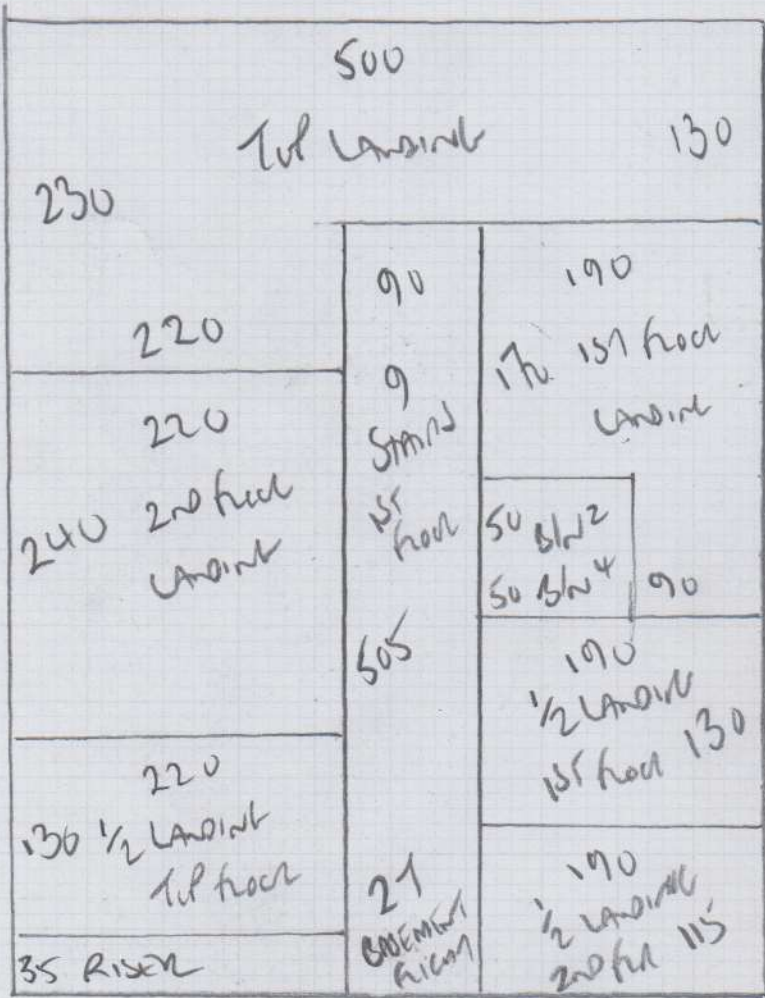 500
TOP LANDING
130
230
220
220
240 2ND FLOOR
LANDING
220
130 1/2 LANDING
TOP FLOOR
35 RISER
90
9
STAIRS
1ST
FLOOR
505
21
BASEMENT
FLIGHT
190
170 1ST FLOOR
LANDING
50 BLN2
50 BLN4
90
190
1/2 LANDING
1ST FLOOR 130
190
1/2 LANDING
2ND FLR 115